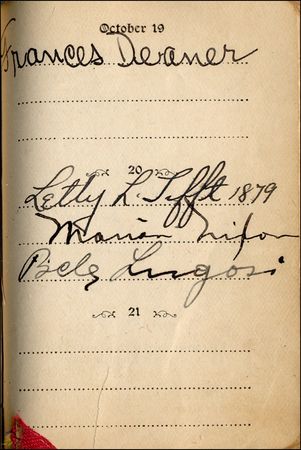 October 19
Frances Deaner
20
Letty L. Tifft 1879
Marian Nixon
Bela Lugosi
21